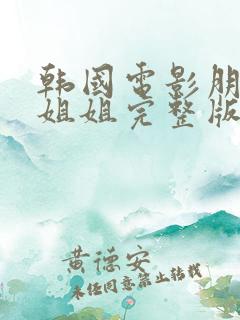 韩国电影朋
姐姐完整版
黄德安
未经同意禁止转载